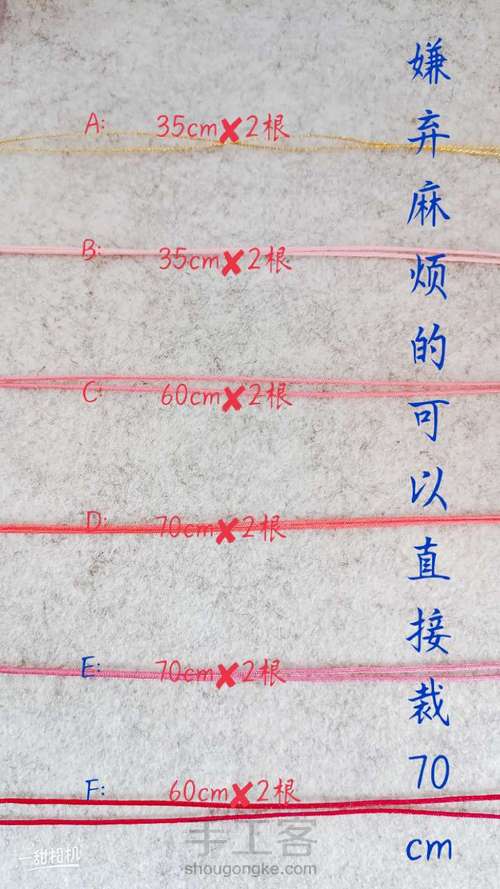 A: 35cm✖2根
B: 35cm✖2根
C: 60cm✖2根
D: 70cm✖2根
E: 70cm✖2根
F: 60cm✖2根
嫌弃麻烦的可以直接裁70cm
手工客
shougongke.com
一甜相机